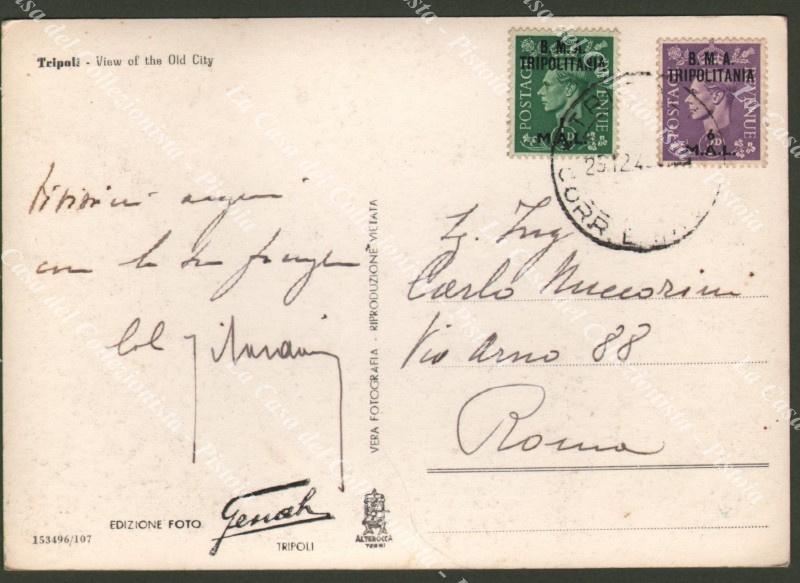 Tripoli - View of the Old City
B. M. A.
TRIPOLITANIA
POSTAGE REVENUE
1
M.A.L.
B. M. A.
TRIPOLITANIA
POSTAGE REVENUE
6
M.A.L.
TRIPOLI
25.12.4
CORR.
auguri
con la sua famiglia
Col
Eg. Ing
Carlo Nuccorini
Via Arno 88
Roma
VERA FOTOGRAFIA - RIPRODUZIONE VIETATA
EDIZIONE FOTO
TRIPOLI
ALTEROCCA
TERNI
153496/107
La Casa del Collezionista - Pistoia